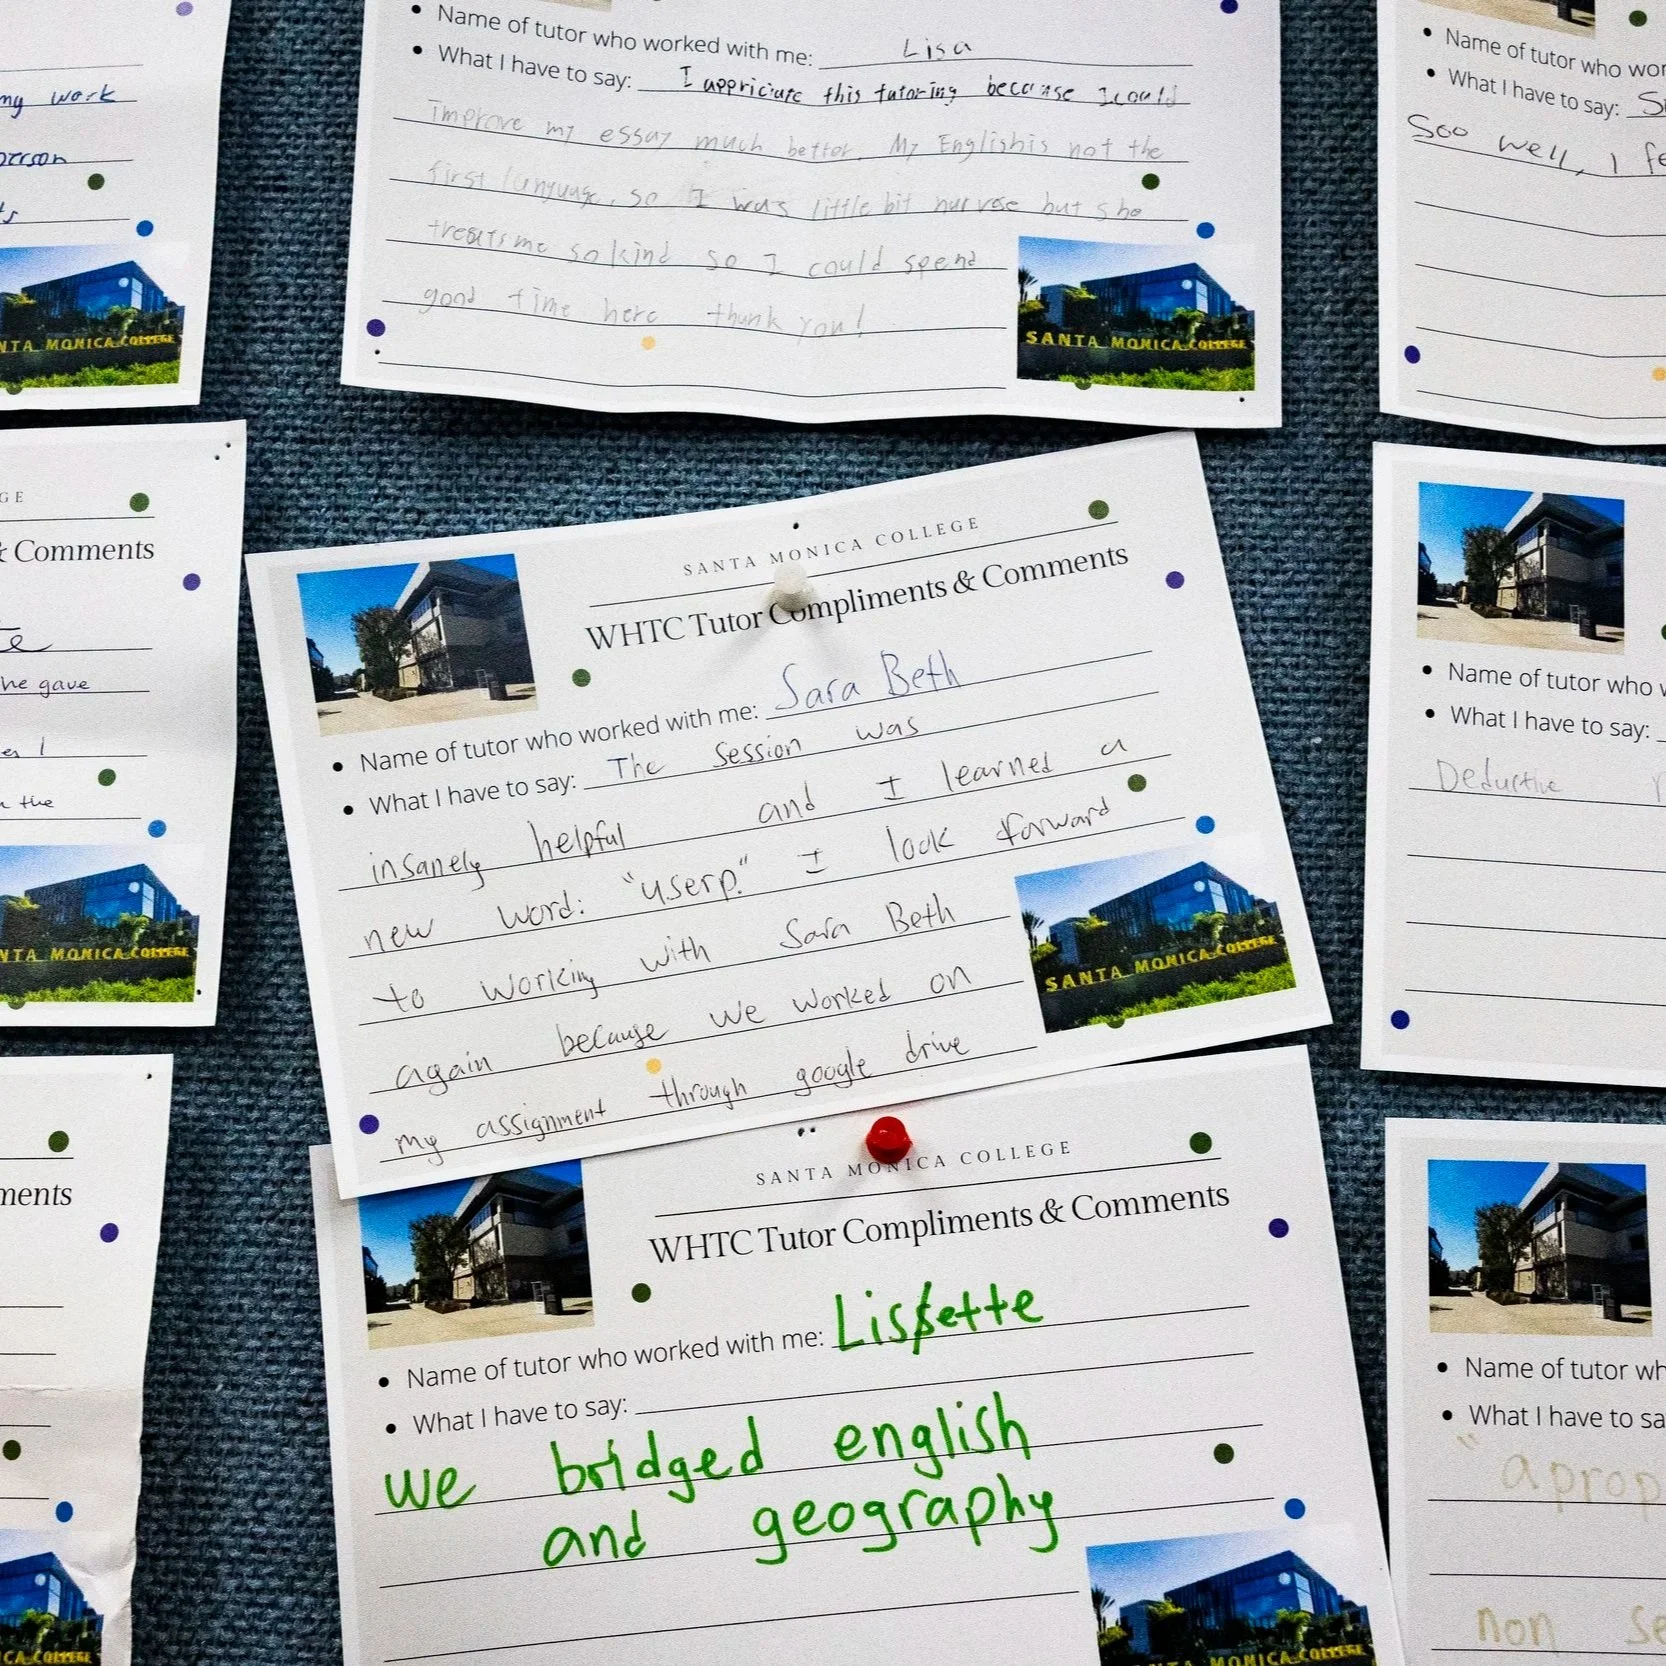 my work
person
SANTA MONICA COLLEGE
Name of tutor who worked with me: Lisa
What I have to say: I appriciate this tutoring because I could
Improve my essay much better. My English is not the
first language, so I was little bit nurvose but she
treats me so kind so I could spend
good time here thank you!
SANTA MONICA COLLEGE
Name of tutor who wor
What I have to say: S
Soo well, I fe
GE
& Comments
he gave
n the
NTA MONICA COLLEGE
SANTA MONICA COLLEGE
WHTC Tutor Compliments & Comments
Name of tutor who worked with me: Sara Beth
What I have to say: The Session was
insanely helpful and I learned a
new word: "userp." I look forward
to working with Sara Beth
again because we worked on
my assignment through google drive
SANTA MONICA COLLEGE
Name of tutor who w
What I have to say:
Deductive
ments
ICA COLLEGE
SANTA MONICA COLLEGE
WHTC Tutor Compliments & Comments
Name of tutor who worked with me: Lissette
What I have to say:
we bridged english
and geography
SANTA MONICA COLLEGE
Name of tutor wh
What I have to sa
"aprop
non se